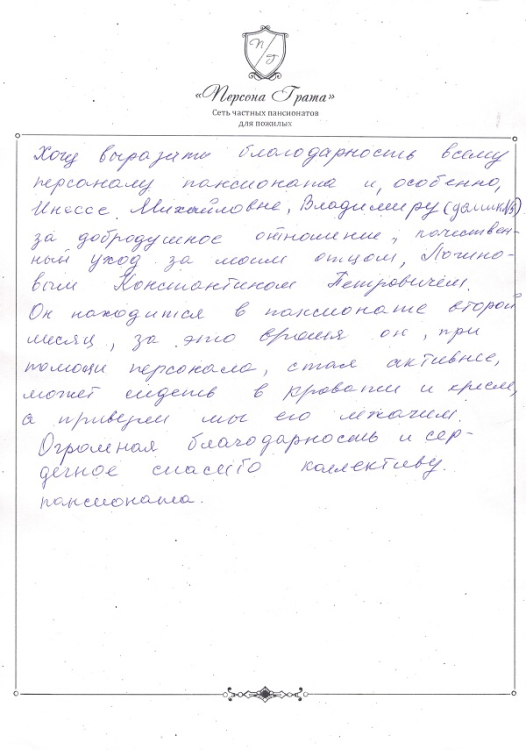 П
Г
«Персона Грата»
Сеть частных пансионатов
для пожилых
Хочу выразить благодарность всему
персоналу пансионата и, особенно,
Инессе Михайловне, Владимиру (домик №3)
за добродушное отношение, качествен-
ный уход за моим отцом, Логино-
вым Константином Петровичем.
Он находится в пансионате второй
месяц, за это время он, при
помощи персонала, стал активнее,
может сидеть в кровати и кресле,
а привезли мы его лежачим.
Огромная благодарность и сер-
дечное спасибо коллективу
пансионата.